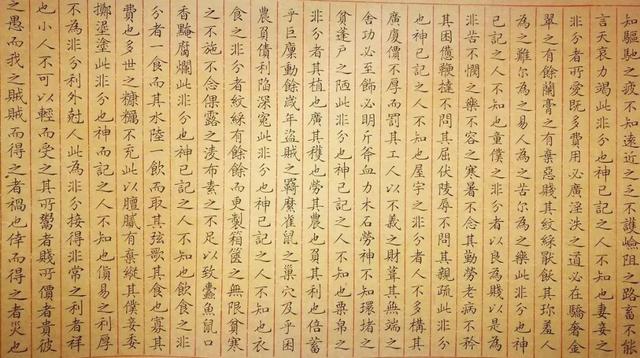 知驅馳之疲不知遠近之乏不護嶮阻之路畜不能
言天哀力竭此非分也神已記之人不知也妻妾之
非分者所愛既多費用必廣淫泆之道必在驕奢金
翠之有餘蘭膏之有棄惡賤其紋綵猒飫其珍羞人
為之難尔為之易人為之苦尔為之樂此非分也神
已記之人不知也童僕之非分者以良為賤以是為
非苦不憫之樂不容之寒暑不念其勤勞老病不矜
其困憊鞭撻不問其屈伏陵辱不問其親疏此非分
也神已記之人不知也屋宇之非分者人不多構其
廣廈價不厚而罰其工人以不義之財葺其無端之
舍功必至飾必明斤斧血力木石勞神不知環堵之
貧蓬户之陋此非分也神已記之人不知也粟帛之
非分者其植也廣其穫也勞其農也負其利也倍蓄
乎巨廩動餘歲年盜賊之羇縻雀鼠之巢穴及乎困
農負債利陷深冤此非分也神已記之人不知也衣
食之非分者紋綵有餘餘而更製箱篋之無限貧寒
之不施不念倮露之凌布素之不足以致蠹魚鼠口
香黦腐爛此非分也神已記之人不知也飲食之非
分者一食而其水陸一飲而取其弦歌其食也寡其
費也多世之糠糲不充此以膻膩有棄縱其僕妾委
擲埿塗此非分也神而記之人不知也貨易之利厚
不為非分利外尅人此為非分接得非常之利者祥
也小人不可以輕而受之其所鬻者賤所價者貴彼
之愚而我之賊賊而得之者禍也倖而得之者災也